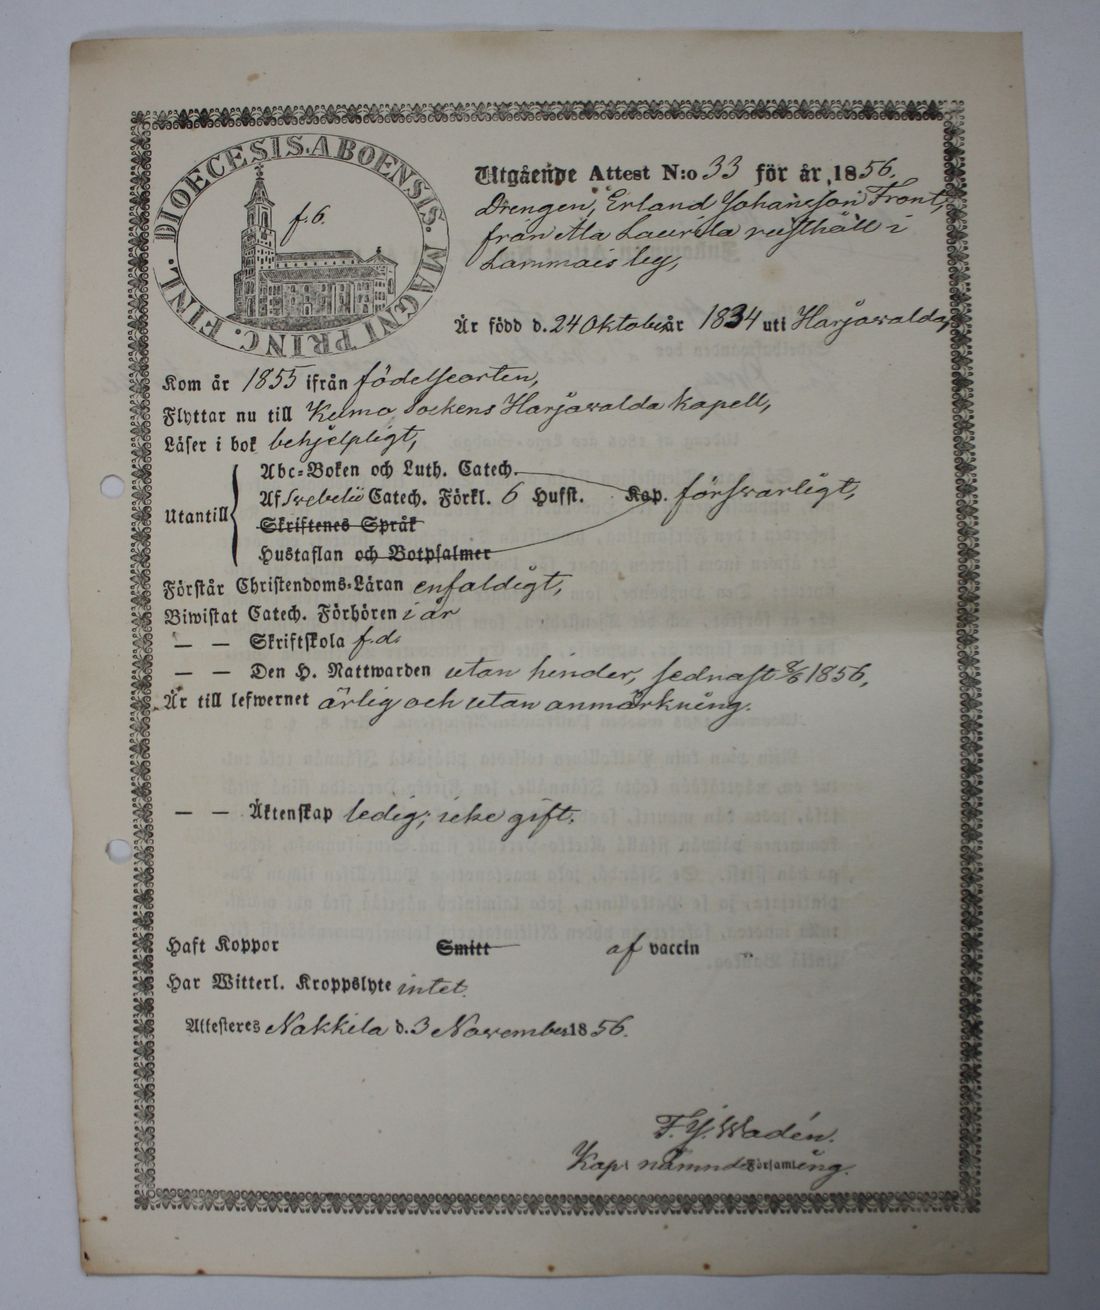 DIOECESIS. ABOENSIS. MAGNI PRINC. FINL.
f. 6.
Utgående Attest N:o 33 för år 1856.
Drengen, Erland Johansson Front,
från Ala Laurila rusthåll i
Lammais by,
Är född d. 24 Oktober år 1834 uti Harjawalda,
Kom år 1855 ifrån födelseorten,
Flyttar nu till Kumo Sockens Harjawalda kapell,
Läser i bok behjelpligt,
Utantill
Abc-Boken och Luth. Catech.
Af Swebelii Catech. Förkl. 6 Hufst. Kap. förswarligt,
Skriftenes Språk
Hustaflan och Botpsalmer
Förstår Christendoms-Läran enfaldigt,
Biwistat Catech. Förhören i år
— — Skriftskola f.d.
— — Den H. Nattwarden utan hinder, sednast 1856,
Är till lefwernet ärlig och utan anmärkning.
— — Äktenskap ledig; icke gift.
Haft Koppor Smitt af vaccin
Har Witterl. Kroppslyte intet.
Attesteres Nakkila d. 3 November 1856.
F. J. Wadén.
Kap. nämnde Församling.